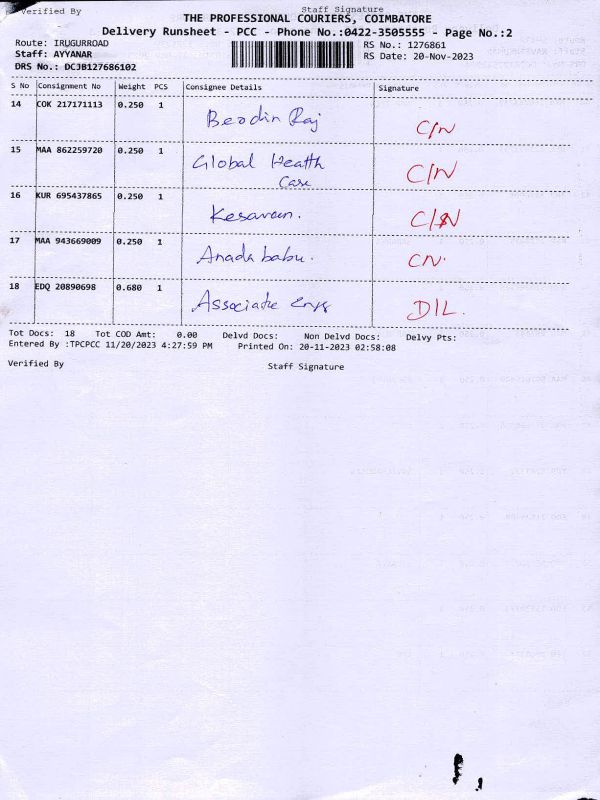 Verified By Staff Signature
THE PROFESSIONAL COURIERS, COIMBATORE
Delivery Runsheet - PCC - Phone No.:0422-3505555 - Page No.:2
Route: IRUGURROAD RS No.: 1276861
Staff: AYYANAR RS Date: 20-Nov-2023
DRS No.: DCJB127686102
S No Consignment No Weight PCS Consignee Details Signature
14 COK 217171113 0.250 1 Raj C/N
15 MAA 862259720 0.250 1 Global Health Care C/N
16 KUR 695437865 0.250 1 Kesavan. C/N
17 MAA 943669009 0.250 1 Anada babu. CN.
18 EDQ 20890698 0.680 1 Associate Engs D/L.
Tot Docs: 18 Tot COD Amt: 0.00 Delvd Docs: Non Delvd Docs: Delvy Pts:
Entered By :TPCPCC 11/20/2023 4:27:59 PM Printed On: 20-11-2023 02:58:08
Verified By Staff Signature